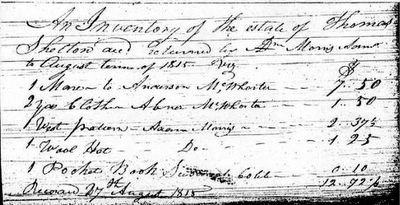 An Inventory of the estate of Thomas
Shelton decd returned by Adm Morris Admr
to August term of 1815. Viz
$
1 Mare to Anderson McWhorter 7.. 50
2 yds Cloth Abner McWhorter 1.. 50
1 Vest pattern Adam Morris 2.. 37½
1 Wool Hat Do 1.. 25
1 Pocket Book Cobb 0.. 10
12.. 72½
Record 27th August 1815